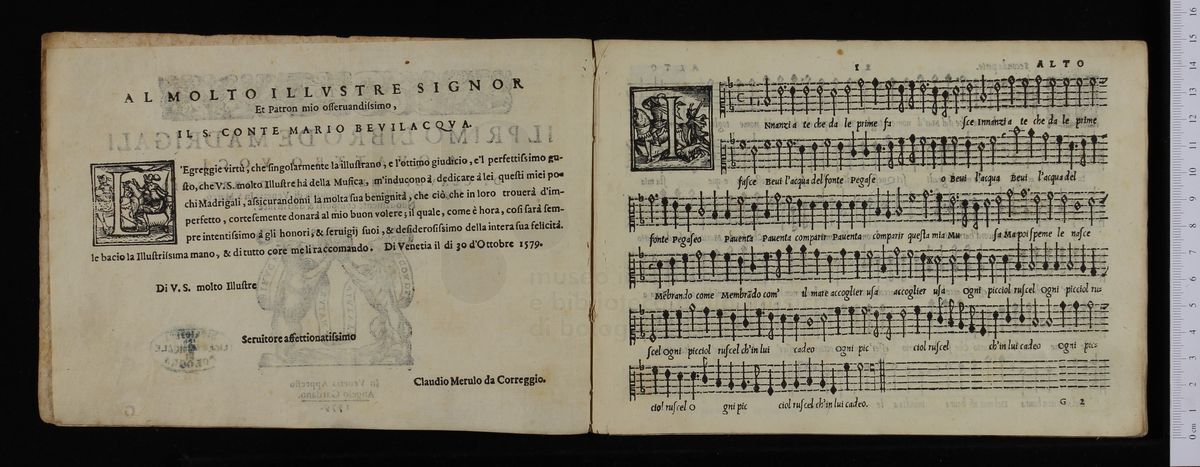 AL MOLTO ILLVSTRE SIGNOR
Et Patron mio osseruandissimo,
IL S. CONTE MARIO BEVILACQVA.
L'Egreggie virtù, che singolarmente la illustrano, e l'ottimo giudicio, e'l perfettissimo gu-
sto, che V.S. molto Illustre hà della Musica, m'inducono à dedicare à lei questi miei po-
chi Madrigali, assicurandomi la molta sua benignità, che ciò che in loro trouerà d'im-
perfetto, cortesemente donarà al mio buon volere; il quale, come è hora, così sarà sem-
pre intentissimo à gli honori, & seruigij suoi, & desiderosissimo della intera sua felicità.
le bacio la Illustrissima mano, & di tutto core me li raccomando. Di Venetia il di 30 d'Ottobre 1579.
Di V. S. molto Illustre
Seruitore affettionatissimo
Claudio Merulo da Correggio.
In Venetia Appresso
Angelo Gardano.
1579.
G
1 ALTO
INnanzi a te che da le prime fa sce Innanzi a te che da le prime
fasce Beui l'acqua del fonte Pegase o Beui l'acqua Beui l'acqua del
fonte Pegaseo Pauenta Pauenta comparir Pauenta comparir questa mia Mu sa Ma poi speme le nasce
Mēbrando come Membrādo com' il mare accoglier usa accoglier usa Ogni picciol ruscel Ogni picciol rus
scel Ogni picciol ruscel ch'in lui cadeo Ogni pic ciol ruscel ch'in lui cadeo Ogni pic-
ciol ruscel O gni pic ciol ruscel ch'in lui cadeo.
G 2
museo i
e bibliot
di bo
0 cm 1 2 3 4 5 6 7 8 9 10 11 12 13 14 15 16